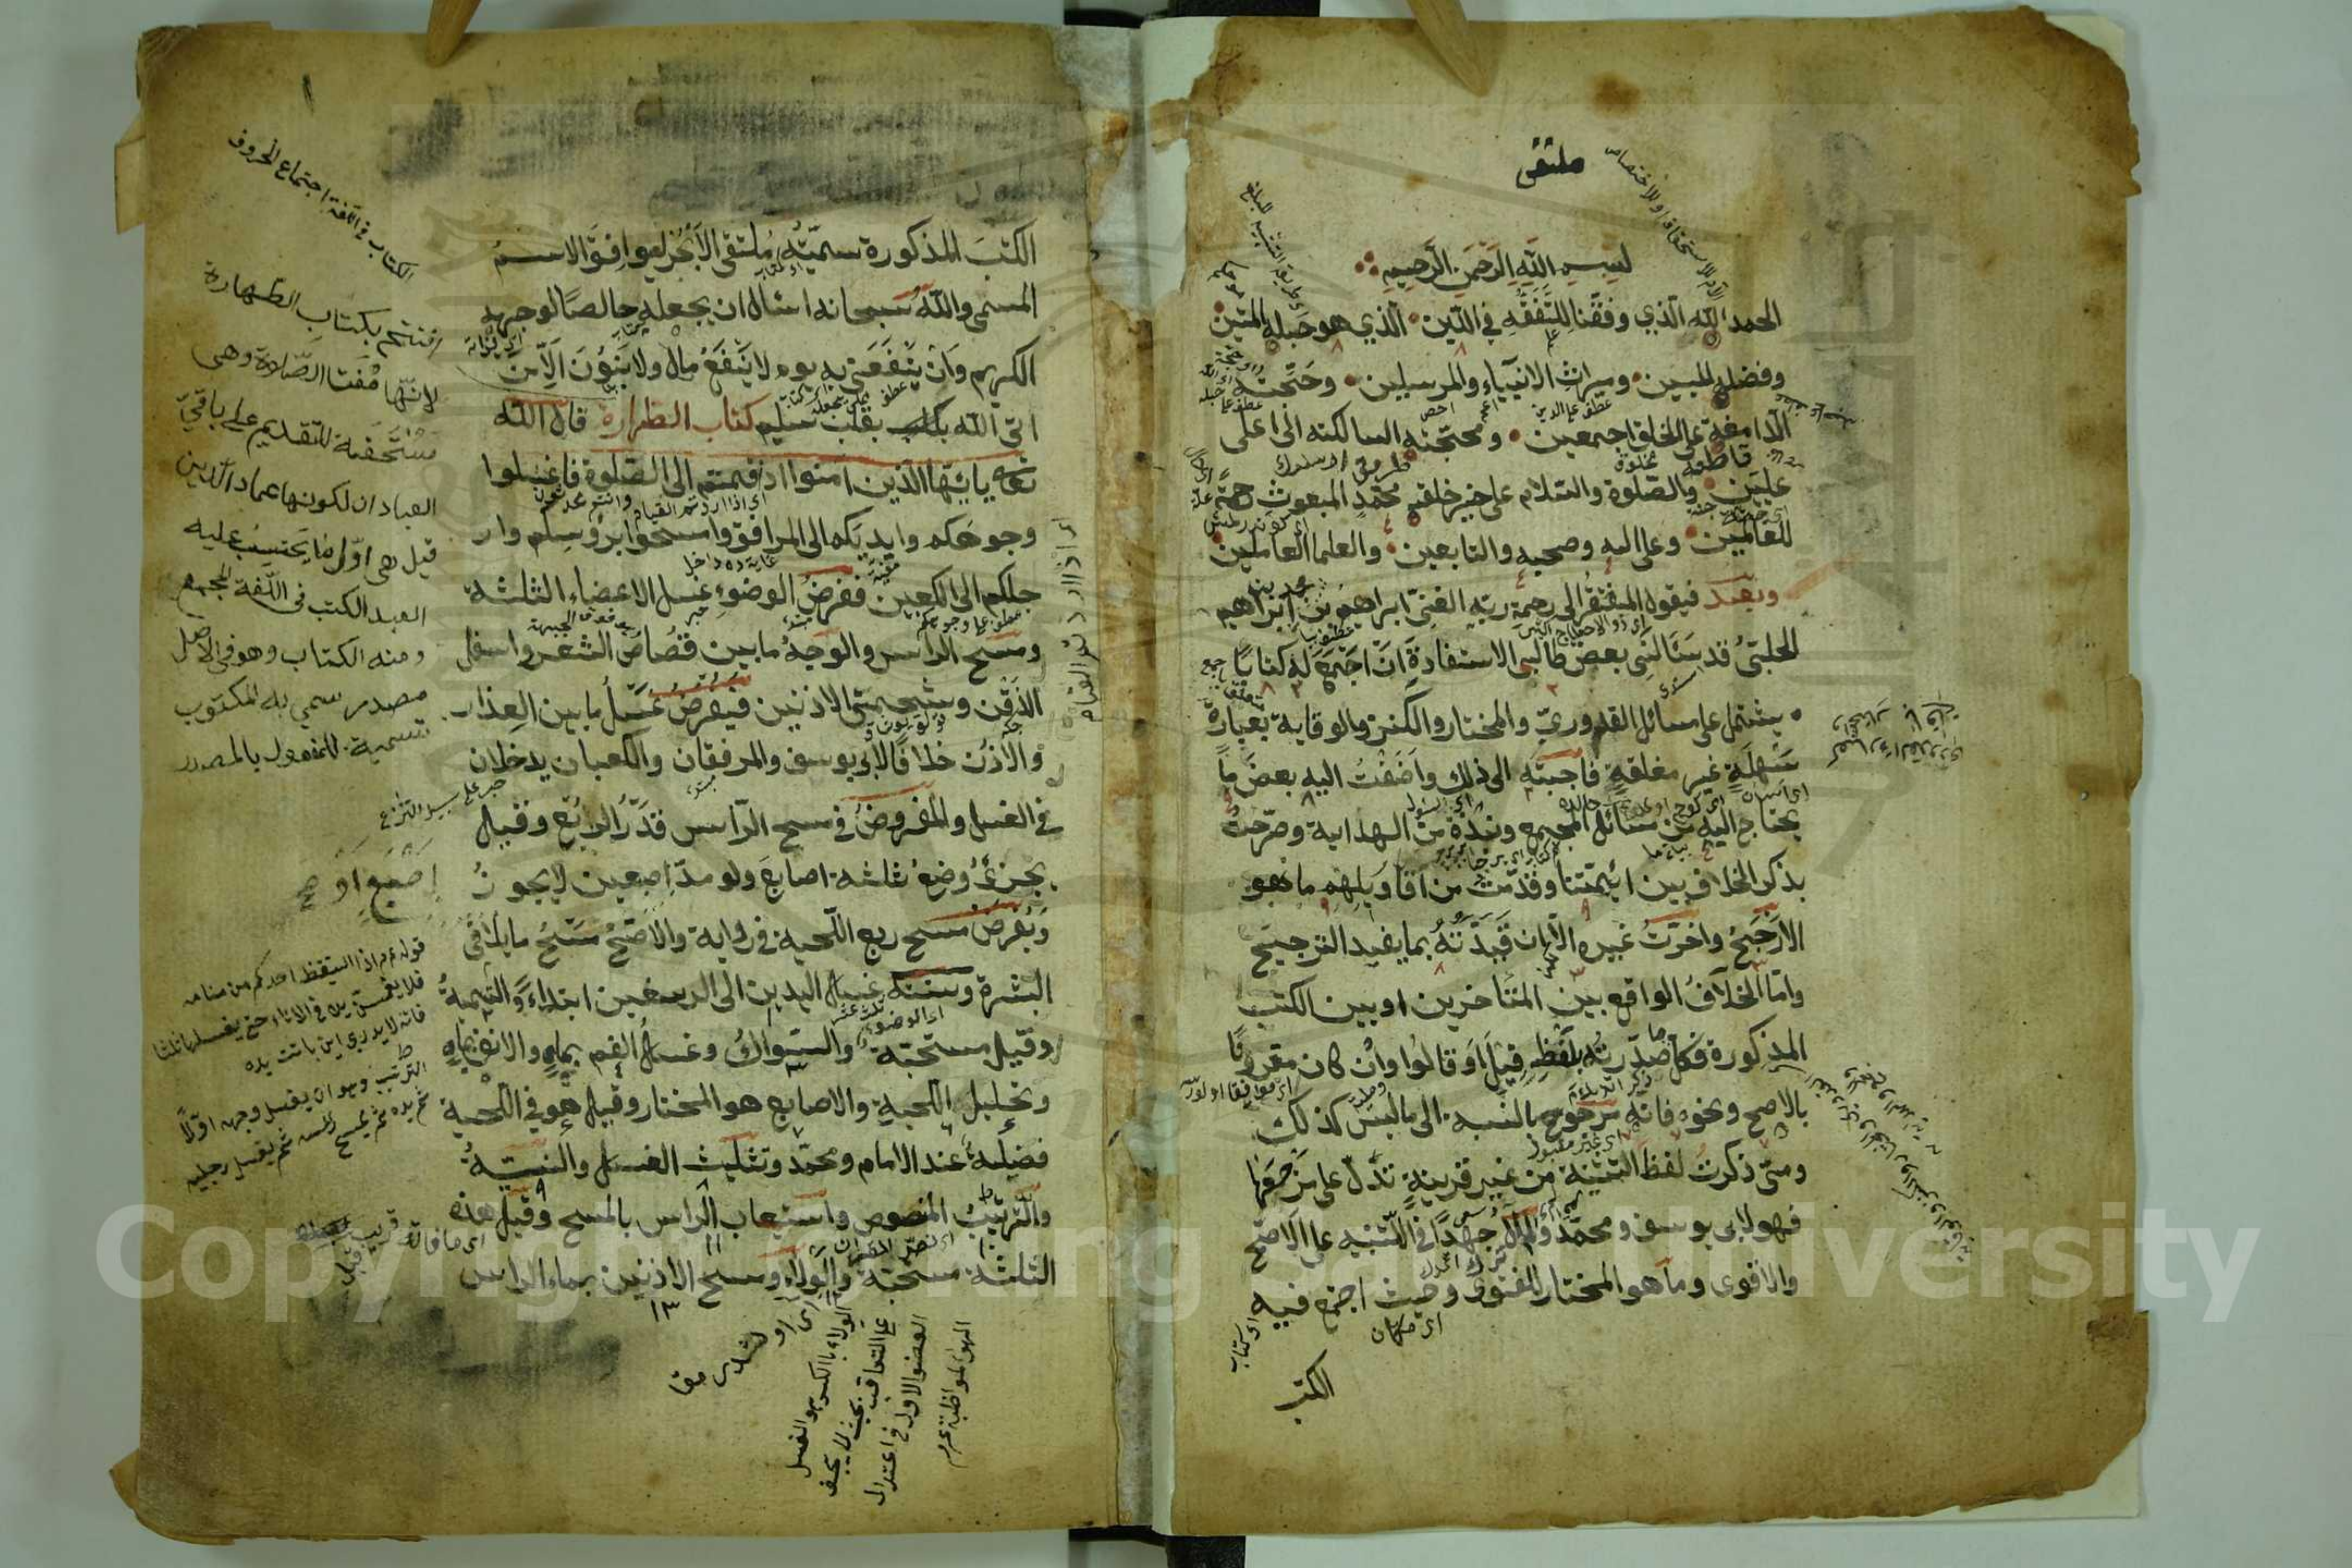 ملتقى
بسم الله الرحمن الرحيم
الحمد لله الذي وفقنا للتفقه في الدين الذي هو حبله المتين
وفضله المبين وميراث الانبياء والمرسلين وحجته
الدامغة على الخلق اجمعين ومحجته السالكة الى اعلى
عليين والصلوة والسلام على خير خلقه محمد المبعوث رحمة
للعالمين وعلى اله وصحبه والتابعين والعلماء العاملين
وبعد فيقول المفتقر الى رحمة ربه الغني ابراهيم بن محمد بن ابراهيم
الحلبي قد سئالني بعض طالبي الاستفادة ان اجمع له كتابا
يشتمل على مسائل القدوري والمختار والكنز والوقاية بعبارة
سهلة غير مغلقة فاجبته الى ذلك واضفت اليه بعض ما
يحتاج اليه من مسائل المجمع ونبذة من الهداية وصرحت
بذكر الخلاف بين ائمتنا وقدمت من اقاويلهم ما هو
الارجح واخرت غيره الا ان قيدته بما يفيد الترجيح
واما الخلاف الواقع بين المتاخرين او بين الكتب
المذكورة فكل ما صدرته بلفظ قيل او قالوا وان كان مقرونا
بالاصح ونحوه فانه مرجوح بالنسبة الى ما ليس كذلك
ومتى ذكرت لفظ التثنية من غير قرينة تدل على مرجعها
فهو لابي يوسف ومحمد ولم ال جهدا في التنبيه على الاصح
والاقوى وما هو المختار للفتوى وحيث اجتمع فيه
الكتب
الكتب المذكورة سميته ملتقى الابحر ليوافق الاسم
المسمى والله سبحانه اسال ان يجعله خالصا لوجهه
الكريم وان ينفعني به يوم لا ينفع مال ولا بنون الا من
اتى الله بقلب سليم كتاب الطهارة قال الله
تعالى يا ايها الذين امنوا اذا قمتم الى الصلوة فاغسلوا
وجوهكم وايديكم الى المرافق وامسحوا برؤسكم وار
جلكم الى الكعبين ففرض الوضوء غسل الاعضاء الثلثة
ومسح الراس والوجه ما بين قصاص الشعر واسفل
الذقن وشحمتي الاذنين فيفرض غسل ما بين العذار
والاذن خلافا لابي يوسف والمرفقان والكعبان يدخلان
في الغسل والمفروض في مسح الراس قدر الربع وقيل
يجزئ وضع ثلثة اصابع ولو مد اصبعين لا يجوز
ويفرض مسح ربع اللحية في رواية والاصح مسح ما يلاقي
البشرة وسننه غسل اليدين الى الرسغين ابتداء والتسمية
وقيل مستحبة والسواك وغسل الفم بمياه والانف بمياه
وتخليل اللحية والاصابع هو المختار وقيل هو في اللحية
فضيلة عند الامام ومحمد وتثليث الغسل والنية
والترتيب المنصوص واستيعاب الراس بالمسح وقيل هذه
الثلثة مستحبة والولاء ومسح الاذنين بماء الراس
الكتاب في اللغة اجتماع الحروف
افتتح بكتاب الطهارة
لانها مفتاح الصلاة وهي
مستحقة للتقديم على باقي
العبادات لكونها عماد الدين
قيل هي اول ما يحتسب عليه
العبد الكتب في اللغة الجمع
ومنه الكتاب وهو في الاصل
مصدر سمي به المكتوب
تسمية للمفعول بالمصدر
قوله عم اذا استيقظ احدكم من منامه
فلا يغمس يده في الاناء حتى يغسلها ثلثا
فانه لا يدري اين باتت يده
الترتيب وهو ان يغسل وجهه اولا
ثم يديه ثم يمسح راسه ثم يغسل رجليه
الولاء بالكسر هو الغسل
على التعاقب بحيث لا يجف
العضو الاول في اعتدال
Copyright © King Saud University